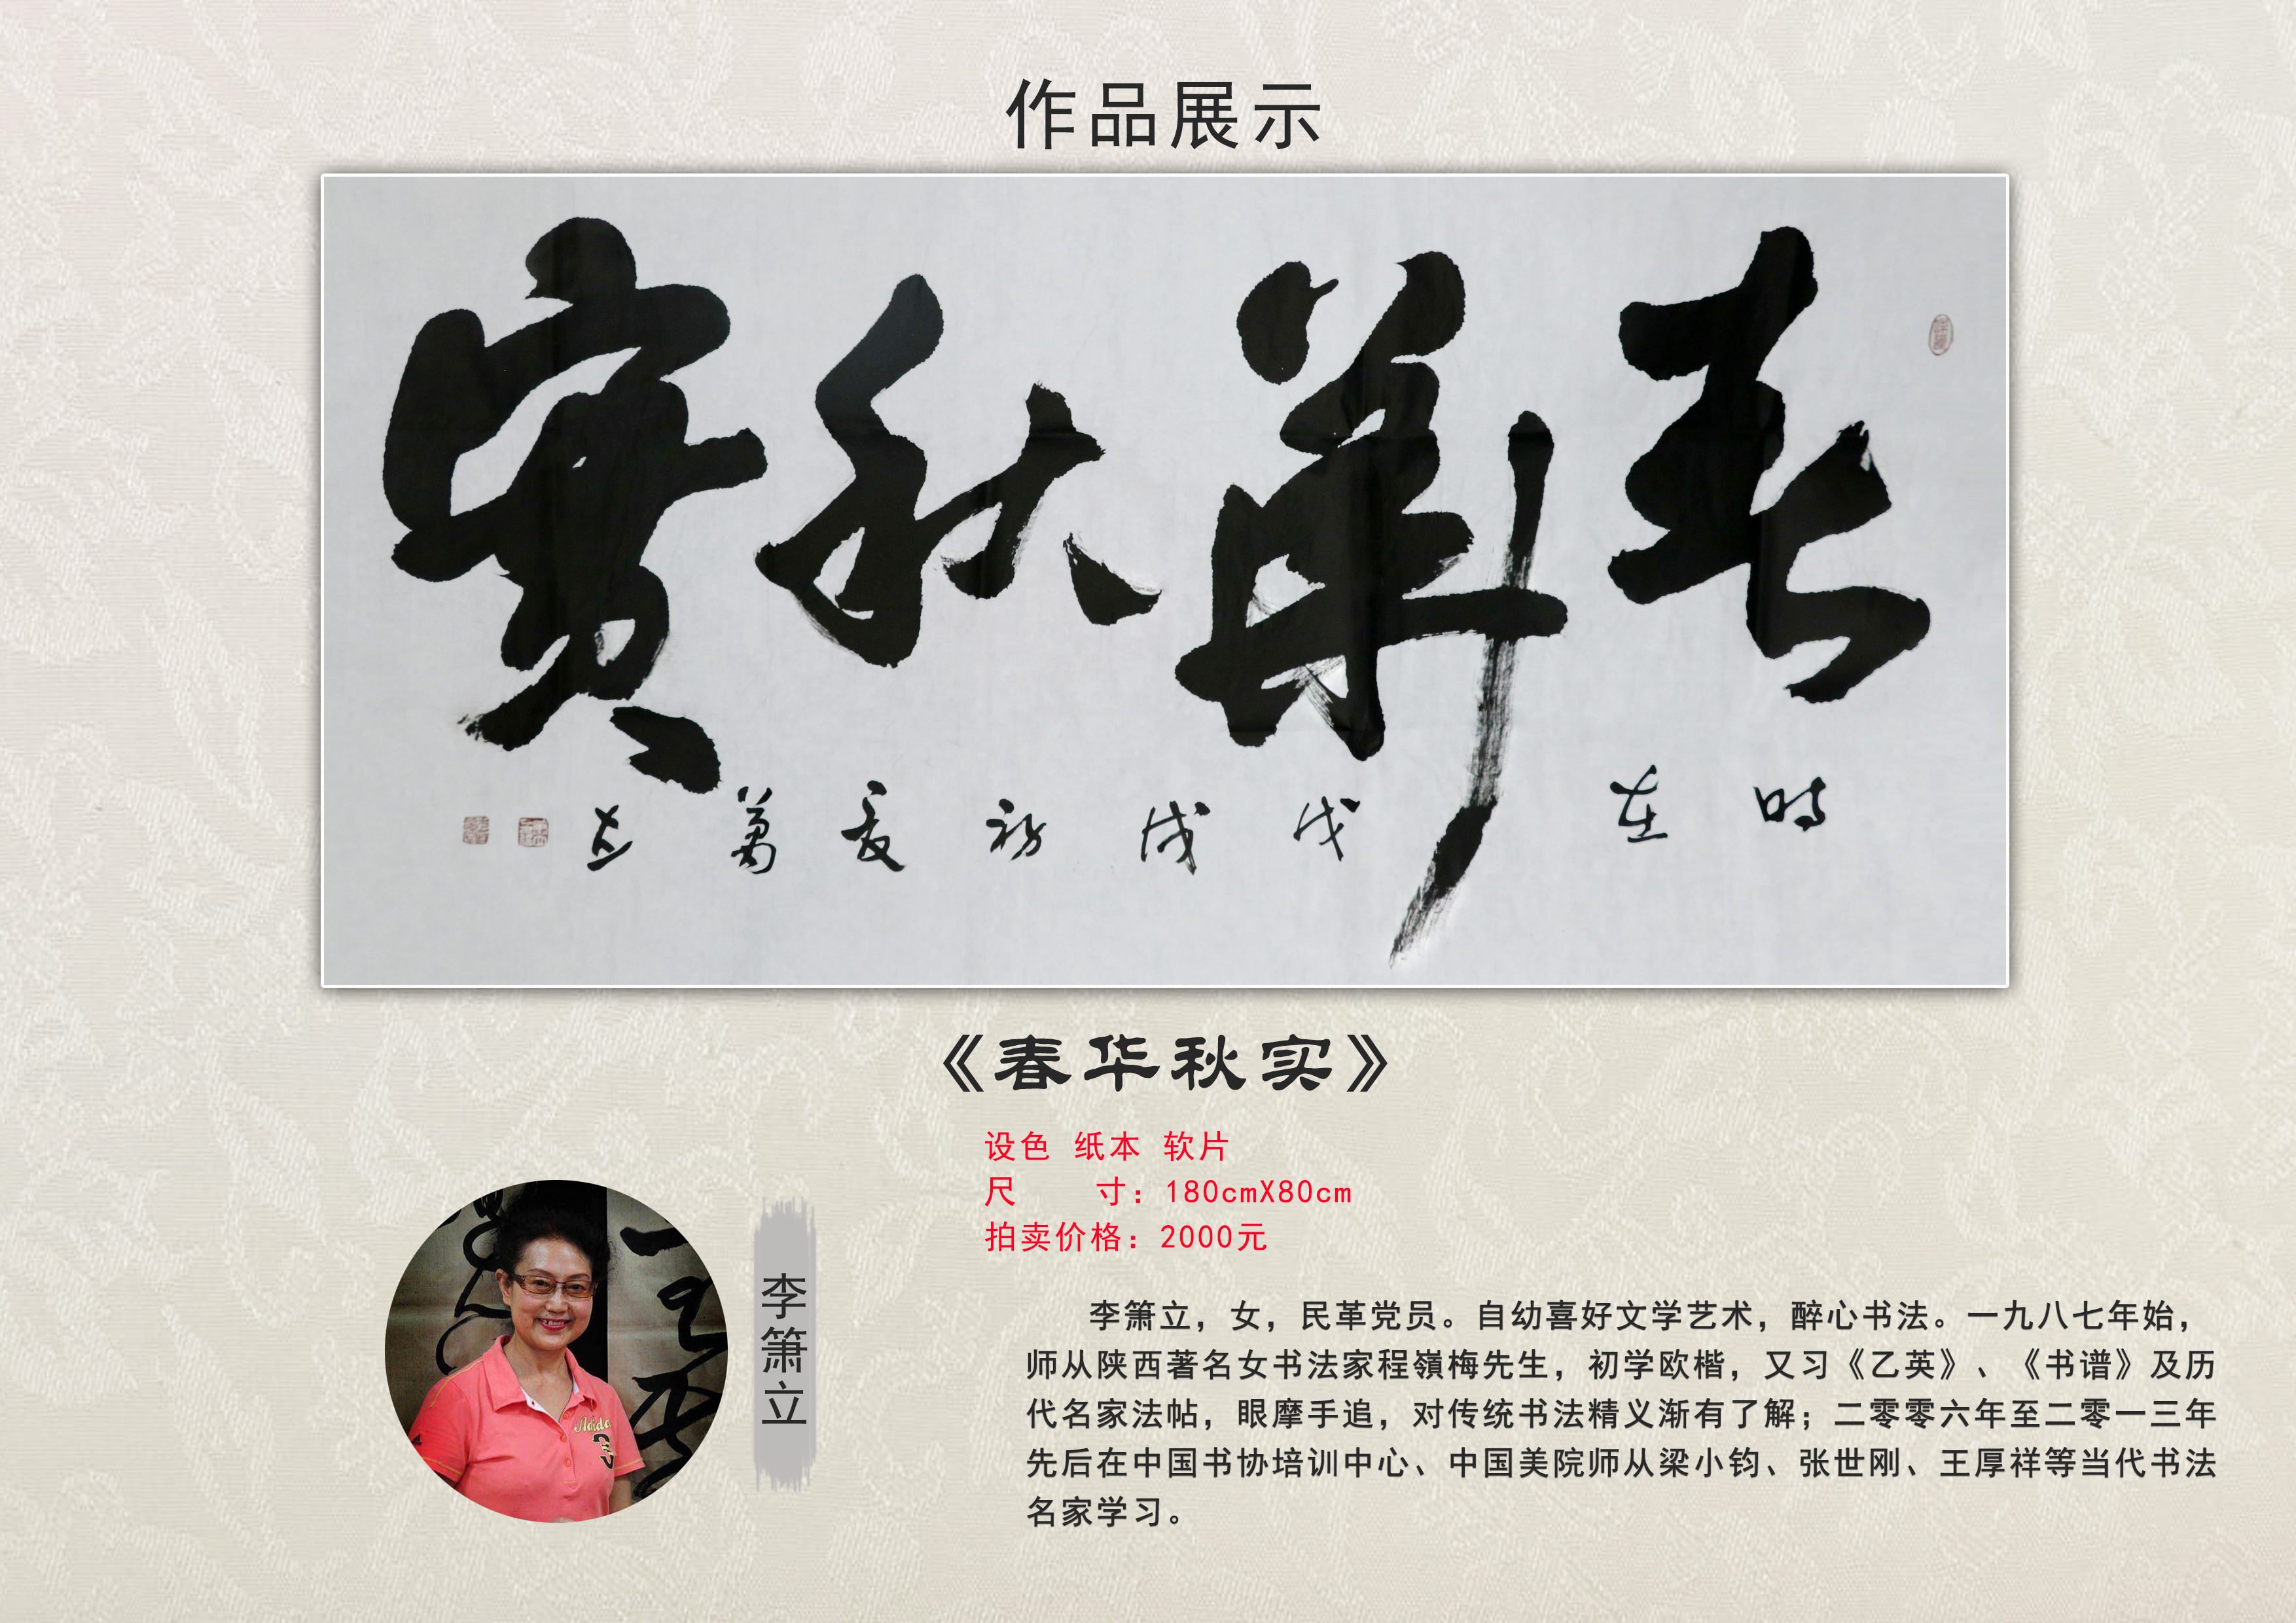 作品展示
春華秋實
時在戊戌初夏蕭立
《春华秋实》
设色 纸本 软片
尺 寸：180cmX80cm
拍卖价格：2000元
李箫立
李箫立，女，民革党员。自幼喜好文学艺术，醉心书法。一九八七年始，
师从陕西著名女书法家程嶺梅先生，初学欧楷，又习《乙英》、《书谱》及历
代名家法帖，眼摩手追，对传统书法精义渐有了解；二零零六年至二零一三年
先后在中国书协培训中心、中国美院师从梁小钧、张世刚、王厚祥等当代书法
名家学习。